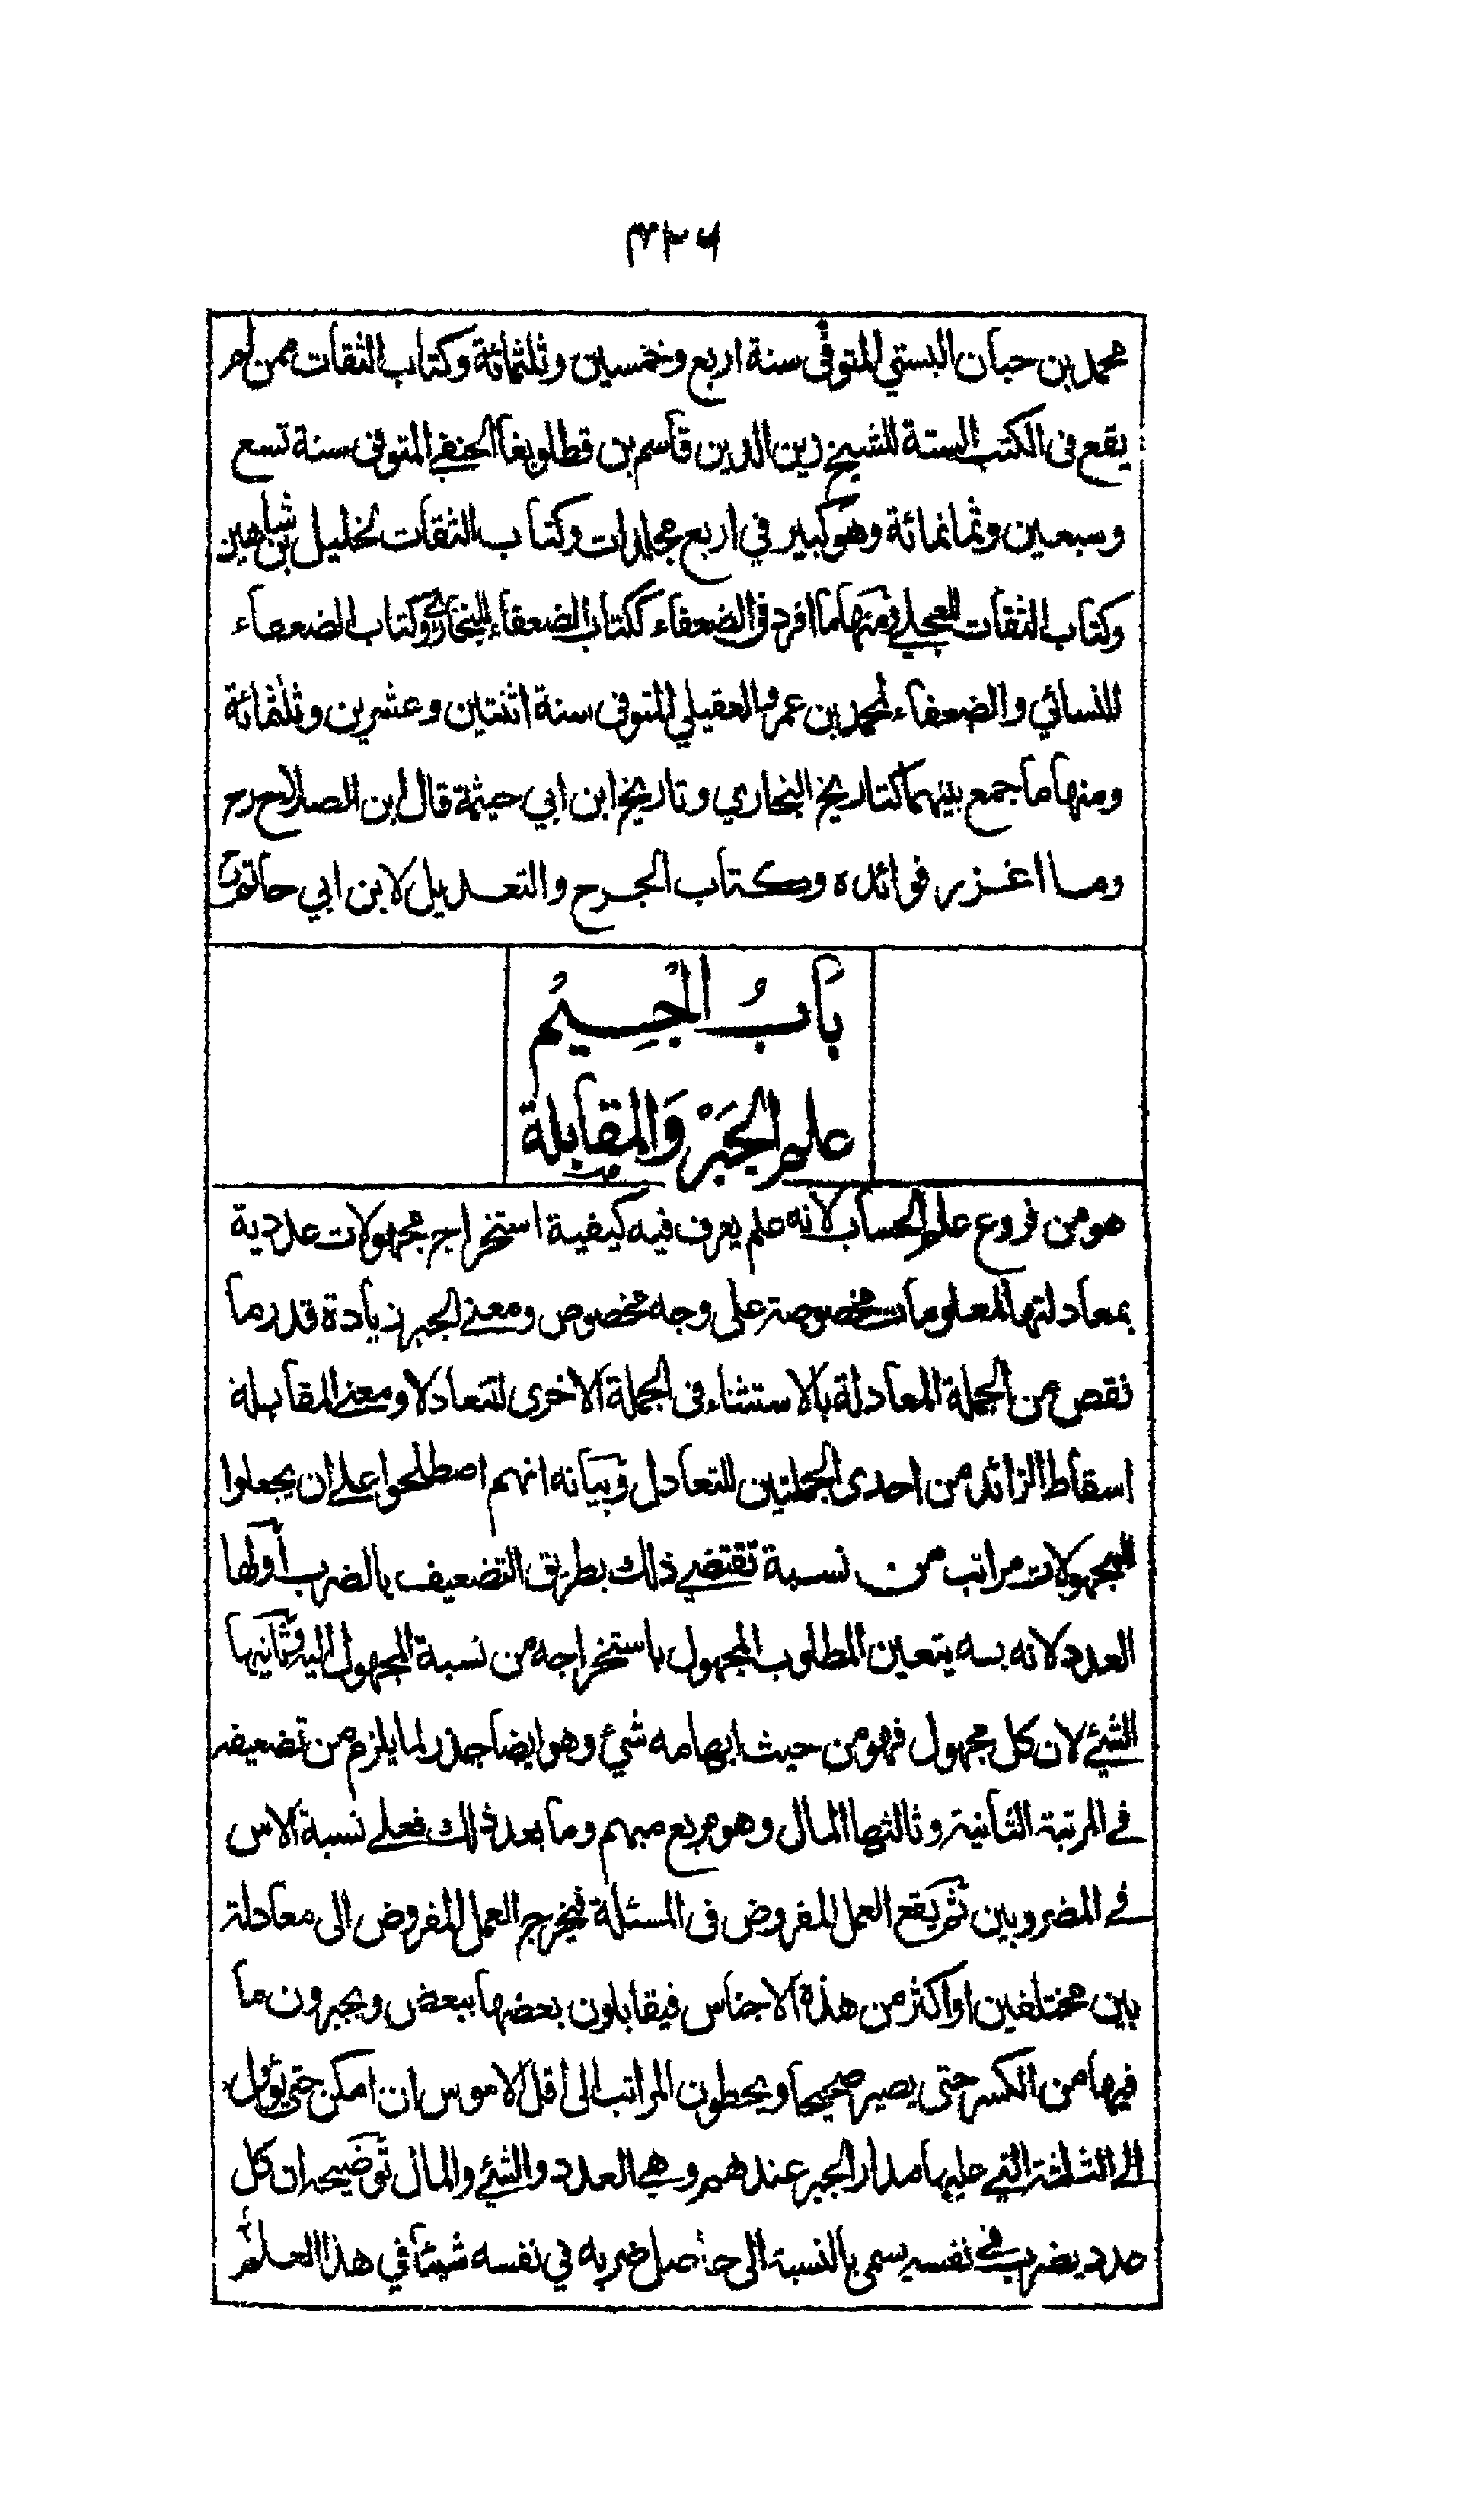 ۳۲۶
محمد بن حبان البستي المتوفى سنة اربع وخمسين وثلثمائة وكتاب الثقات ممن لم
يقع فى الكتب الستة للشيخ زين الدين قاسم بن قطلوبغا الحنفي المتوفى سنة تسع
وسبعين وثمانمائة وهو كبير في اربع مجلدات وكتاب الثقات لخليل بن شاهين
وكتاب الثقات للعجلي ومنها ما افرد فى الضعفاء ككتاب الضعفاء للبخاري وكتاب الضعفاء
للنسائي والضعفاء لمحمد بن عمرو العقيلي المتوفى سنة اثنتين وعشرين وثلثمائة
ومنها ما جمع بينهما كتاريخ البخاري وتاريخ ابن ابي حيثمة قال ابن الصلاح رح
وما اغزر فوائده وكتاب الجرح والتعديل لابن ابي حاتم
بَابُ الْجِيْمُ
علم الجَبْر وَالمقابلة
هو من فروع علم الحساب لانه علم يعرف فيه كيفية استخراج مجهولات عددية
بمعادلتها لمعلومات مخصوصة على وجه مخصوص ومعنى الجبر زيادة قدر ما
نقص من الجملة المعادلة بالاستثناء فى الجملة الاخرى لتتعادلا ومعنى المقابلة
اسقاط الزائد من احدى الجملتين للتعادل وبيانه انهم اصطلحوا على ان يجعلوا
للمجهولات مراتب من نسبة تقتضي ذلك بطريق التضعيف بالضرب اولها
العدد لانه به يتعين المطلوب المجهول باستخراجه من نسبة المجهول اليه وثانيها
الشئ لان كل مجهول فهو من حيث ابهامه شيء وهو ايضا جذر لما يلزم من تضعيفه
في المرتبة الثانية وثالثها المال وهو مربع مبهم وما بعد ذلك فعلى نسبة الاس
في المضروبين ثم يقع العمل المفروض فى المسئلة فيخرج العمل المفروض الى معادلة
بين مختلفين او اكثر من هذه الاجناس فيقابلون بعضها ببعض ويجبرون ما
فيها من الكسر حتى يصير صحيحا ويحطون المراتب الى اقل الاموس ان امكن حتى يؤل
الى الثلثة التي عليها مدار الجبر عندهم وهي العدد والشئ والمال توضيحه ان كل
عدد يضرب في نفسه يسمى بالنسبة الى حاصل ضربه في نفسه شيئا في هذا العلم